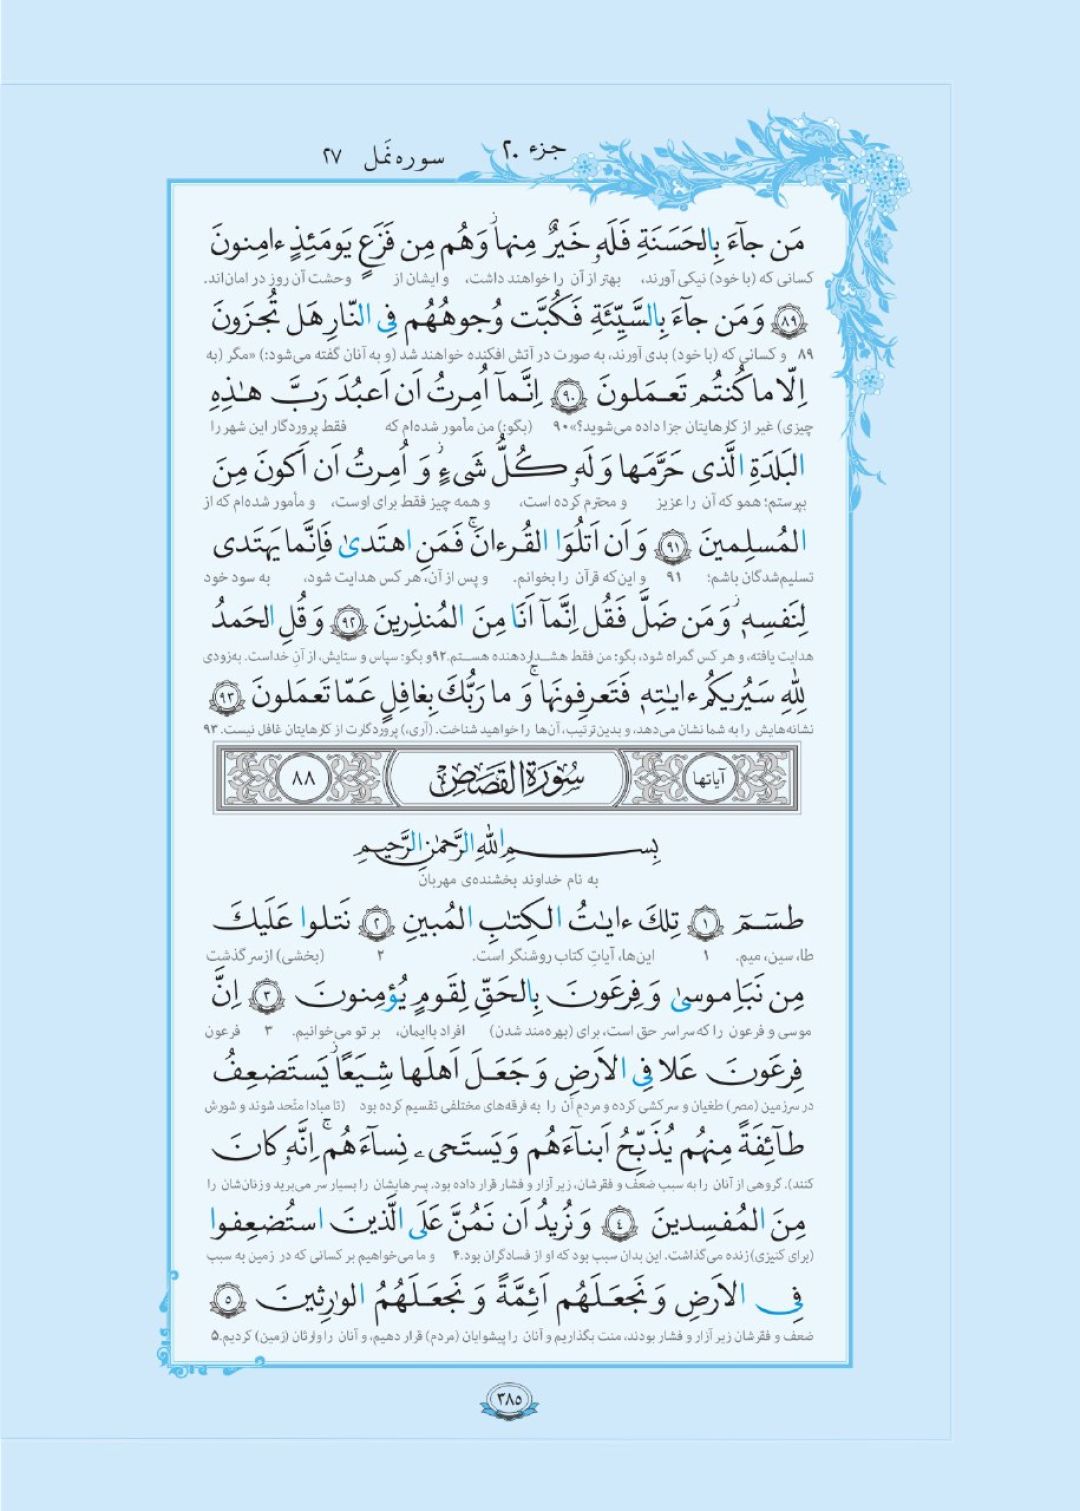 جزء ۲۰
سوره نَمل ۲۷
مَن جآءَ بِالحَسَنَةِ فَلَهٗ خَيرٌ مِنها ۚ وَهُم مِن فَزَعٍ يَومَئِذٍ ءامِنونَ
کسانی که (با خود) نیکی آورند، بهتر از آن را خواهند داشت، و ایشان از وحشت آن روز در امان‌اند.
﴿٨٩﴾ وَ مَن جآءَ بِالسَّيِّئَةِ فَكُبَّت وُجوهُهُم فِى النّارِ هَل تُجزَونَ
۸۹ و کسانی که (با خود) بدی آورند، به صورت در آتش افکنده خواهند شد (و به آنان گفته می‌شود:) «مگر (به
اِلّا ما كُنتُم تَعمَلونَ ﴿٩٠﴾ اِنَّمآ اُمِرتُ اَن اَعبُدَ رَبَّ هٰذِهِ
چیزی) غیر از کارهایتان جزا داده می‌شوید؟» ۹۰ (بگو:) من مأمور شده‌ام که فقط پروردگار این شهر را
البَلدَةِ الَّذى حَرَّمَها وَ لَهٗ كُلُّ شَىءٍ ۖ وَ اُمِرتُ اَن اَكونَ مِنَ
بپرستم؛ همو که آن را عزیز و محترم کرده است، و همه چیز فقط برای اوست، و مأمور شده‌ام که از
المُسلِمينَ ﴿٩١﴾ وَ اَن اَتلُوَا القُرءانَ ۖ فَمَنِ اهتَدىٰ فَاِنَّما يَهتَدى
تسلیم‌شدگان باشم؛ ۹۱ و این‌که قرآن را بخوانم. و پس از آن، هر کس هدایت شود، به سود خود
لِنَفسِهٖ ۖ وَ مَن ضَلَّ فَقُل اِنَّمآ اَنَا مِنَ المُنذِرينَ ﴿٩٢﴾ وَ قُلِ الحَمدُ
هدایت یافته، و هر کس گمراه شود، بگو: من فقط هشداردهنده هستم. ۹۲ و بگو: سپاس و ستایش، از آنِ خداست. به‌زودی
لِلّٰهِ سَيُريكُم ءايٰتِهٖ فَتَعرِفونَها ۚ وَ ما رَبُّكَ بِغافِلٍ عَمّا تَعمَلونَ ﴿٩٣﴾
نشانه‌هایش را به شما نشان می‌دهد، و بدین‌ترتیب، آن‌ها را خواهید شناخت. (آری،) پروردگارت از کارهایتان غافل نیست. ۹۳
آیاتها سُورَةُ القَصَصِ ۸۸
بِسمِ اللّٰهِ الرَّحمٰنِ الرَّحيمِ
به نام خداوند بخشنده‌ی مهربان
طسٓمٓ ﴿١﴾ تِلكَ ءايٰتُ الكِتٰبِ المُبينِ ﴿٢﴾ نَتلوا عَلَيكَ
طا، سین، میم. ۱ این‌ها، آیاتِ کتاب روشنگر است. ۲ (بخشی) از سرگذشت
مِن نَبَاِ موسىٰ وَ فِرعَونَ بِالحَقِّ لِقَومٍ يُؤمِنونَ ﴿٣﴾ اِنَّ
موسی و فرعون را که سراسر حق است، برای (بهره‌مند شدن) افراد باایمان، بر تو می‌خوانیم. ۳ فرعون
فِرعَونَ عَلا فِى الاَرضِ وَ جَعَلَ اَهلَها شِيَعًا يَستَضعِفُ
در سرزمین (مصر) طغیان و سرکشی کرده و مردمِ آن را به فرقه‌های مختلفی تقسیم کرده بود (تا مبادا متّحد شوند و شورش
طآئِفَةً مِنهُم يُذَبِّحُ اَبنآءَهُم وَ يَستَحىۦ نِسآءَهُم ۚ اِنَّهٗ كانَ
کنند). گروهی از آنان را به سبب ضعف و فقرشان، زیر آزار و فشار قرار داده بود. پسرهایشان را بسیار سر می‌برید و زنانشان را
مِنَ المُفسِدينَ ﴿٤﴾ وَ نُريدُ اَن نَمُنَّ عَلَى الَّذينَ استُضعِفوا
(برای کنیزی) زنده می‌گذاشت. این بدان سبب بود که او از فسادگران بود. ۴ و ما می‌خواهیم بر کسانی که در زمین به سبب
فِى الاَرضِ وَ نَجعَلَهُم اَئِمَّةً وَ نَجعَلَهُمُ الوارِثينَ ﴿٥﴾
ضعف و فقرشان زیر آزار و فشار بودند، منت بگذاریم و آنان را پیشوایان (مردم) قرار دهیم، و آنان را وارثان (زمین) کردیم. ۵
۳۸۵